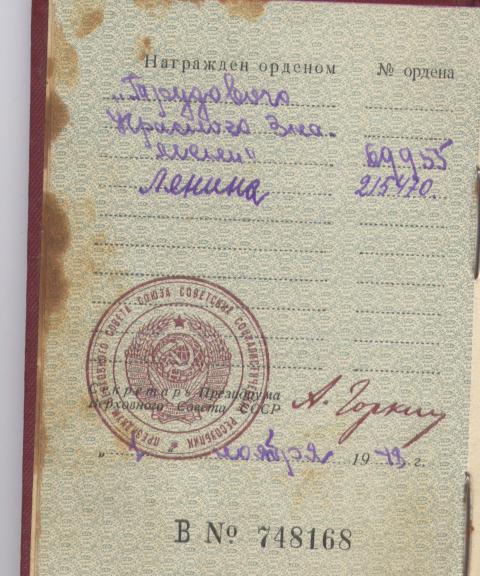 Награжден орденом № ордена
„Трудового
Красного Зна-
мени" 69955
Ленина 215470.
ПРЕЗИДИУМ ВЕРХОВНОГО СОВЕТА СОЮЗА СОВЕТСКИХ СОЦИАЛИСТИЧЕСКИХ РЕСПУБЛИК
Секретарь Президиума
Верховного Совета СССР А. Горкин
ноября 19 г.
В № 748168